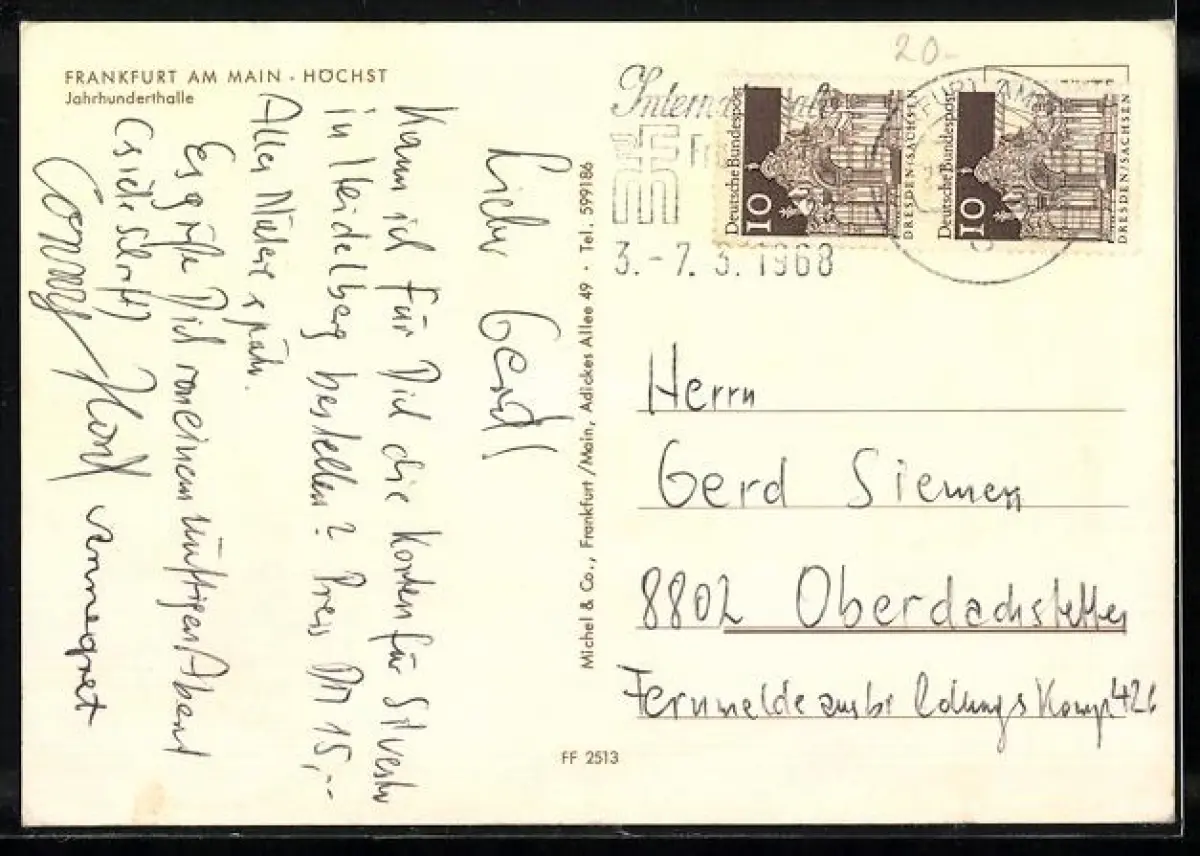 FRANKFURT AM MAIN · HÖCHST
Jahrhunderthalle
Lieber Gerd!
Kann ich für Dich die Karten für Silvester
in Heidelberg bestellen? Preis DM 15,--
Alles Nähere später.
Es grüßt Dich von einem zünftigen Abend
Conny Horst Annegret
Michel & Co., Frankfurt/Main, Adickes Allee 49 · Tel. 599186
FF 2513
20-
3.-7. 3. 1968
Deutsche Bundespost
10
DRESDEN/SACHSEN
Deutsche Bundespost
10
DRESDEN/SACHSEN
Herrn
Gerd Siemen
8802 Oberdachstetten
Fernmeldeausbildungs Komp 426